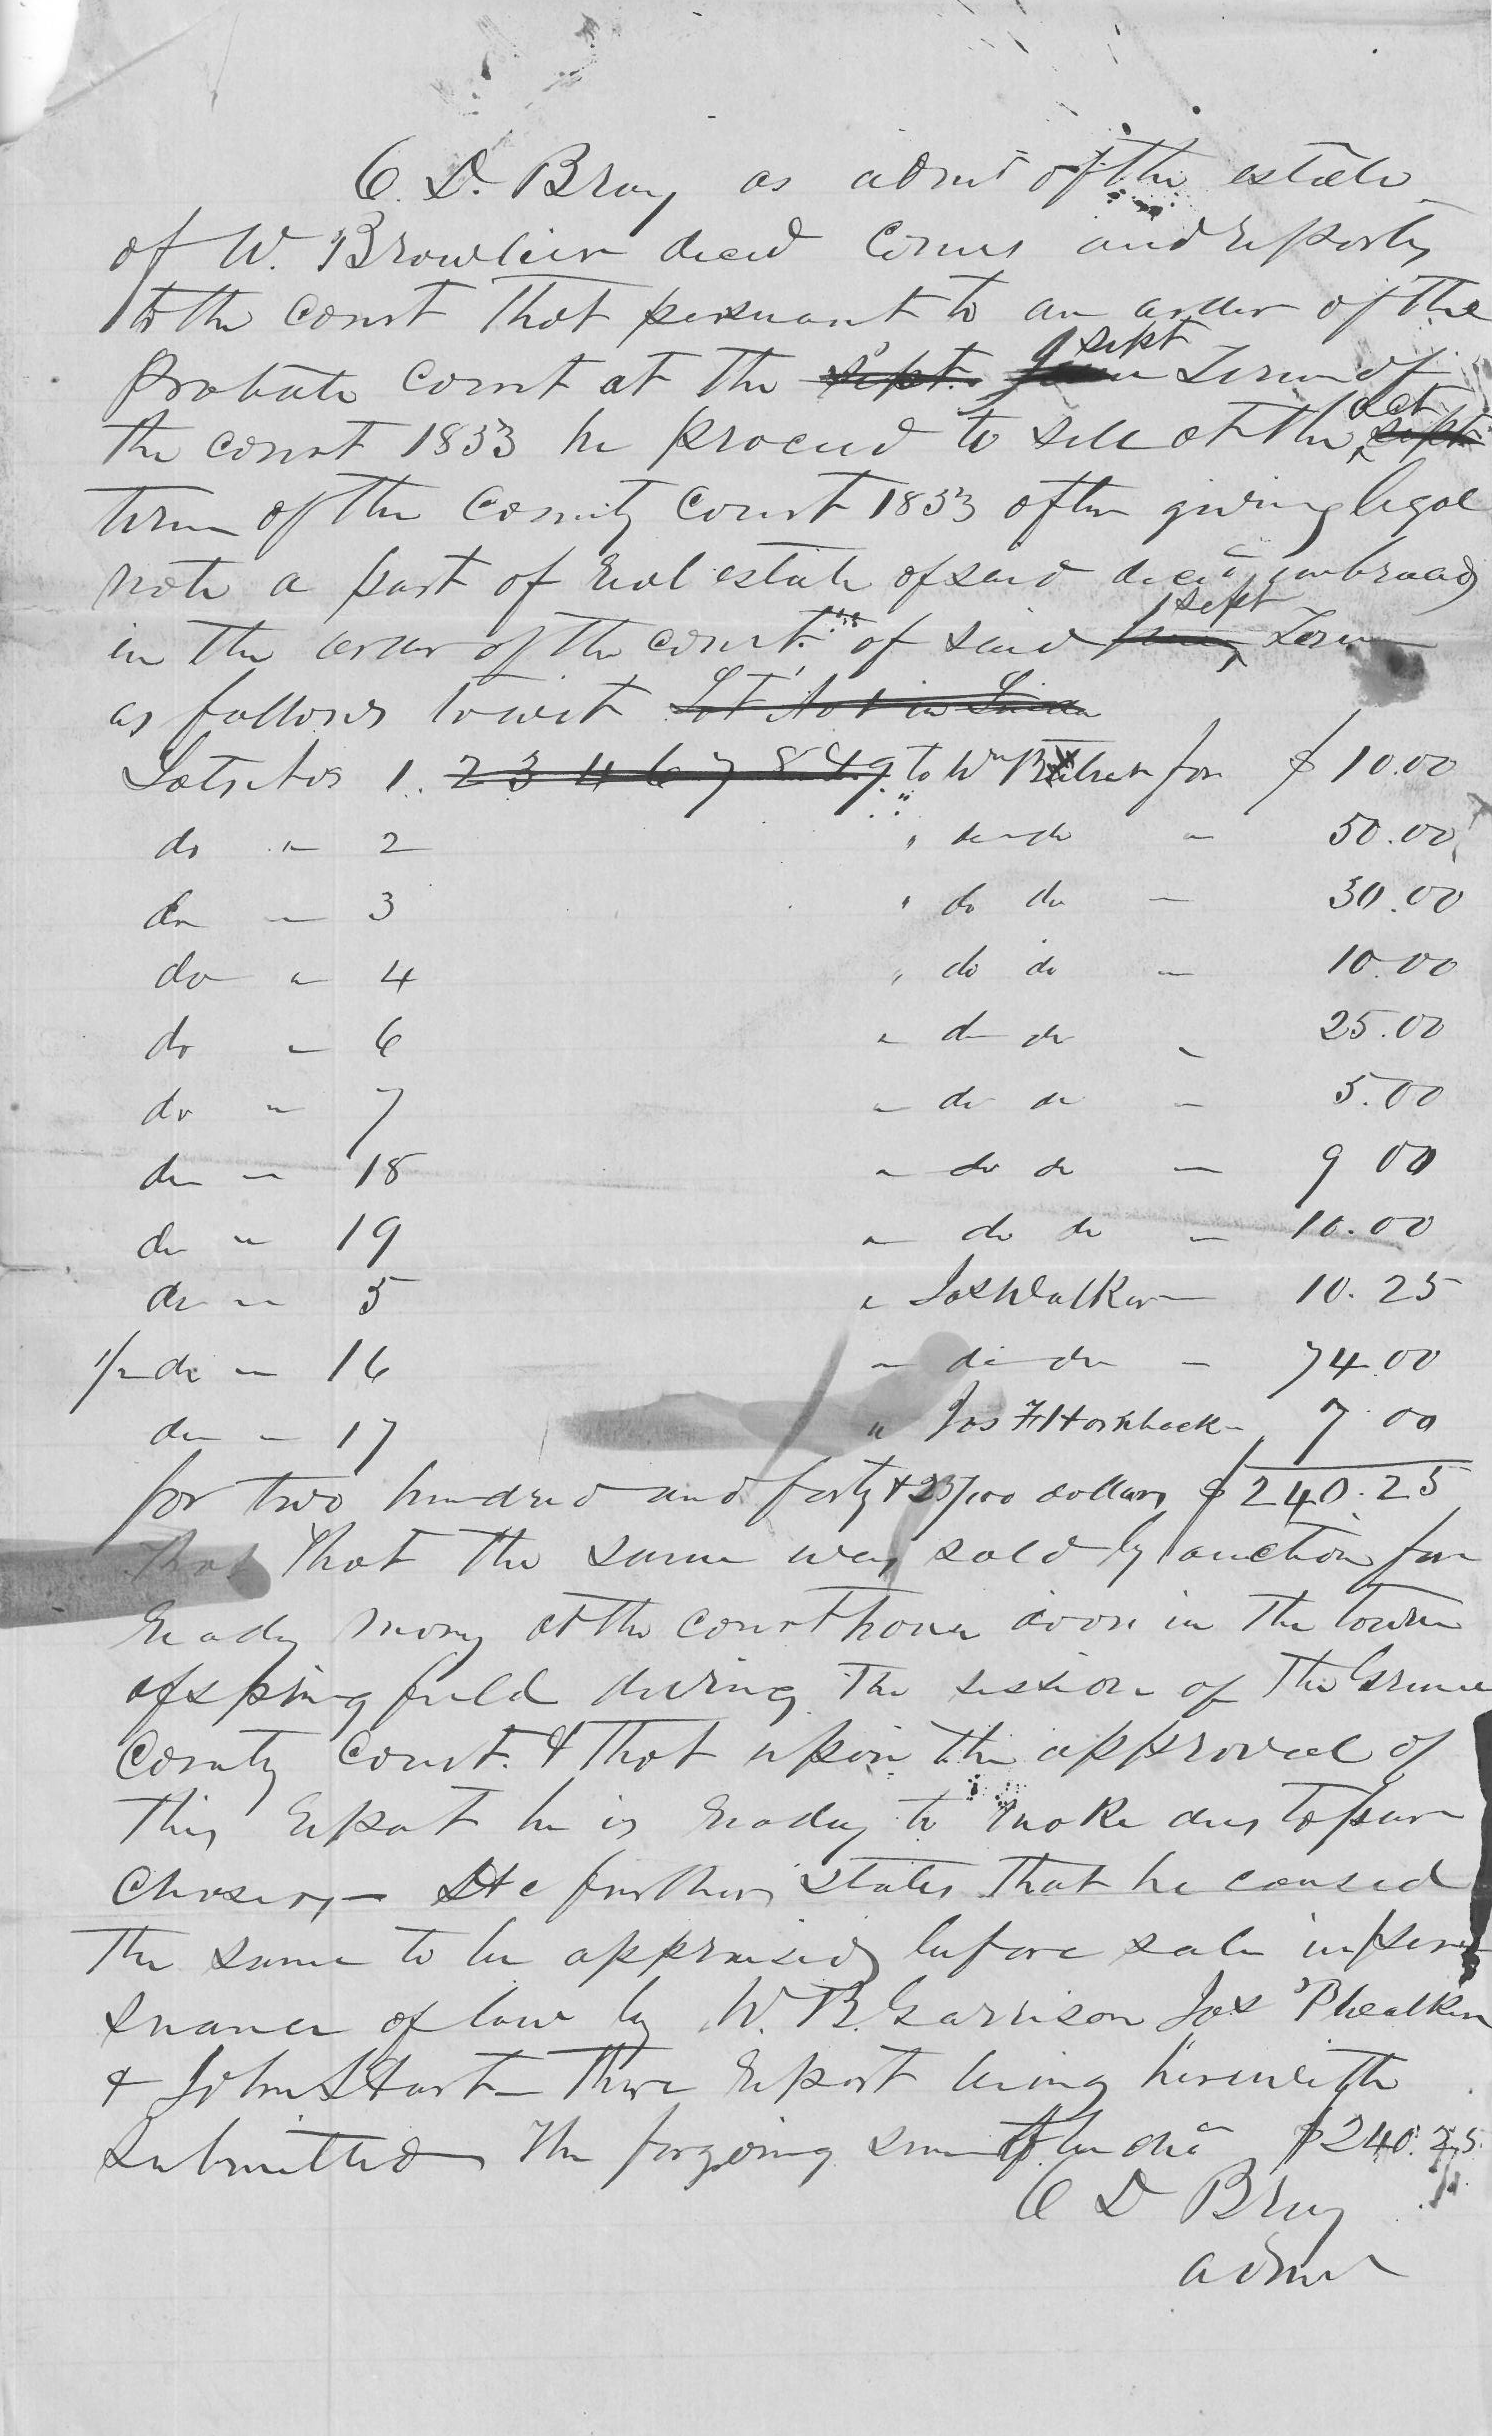 C. D. Bray as admr of the estate
of W. decd comes and reports
to the court that persuant to an order of the
Probate court at the sept. June sept Term of
the court 1853 he proceed to sell at the oct sept
term of the county court 1853 after giving legal
note a part of real estate of said decd embraced
in the order of the court of said June sept Term
as follows towit Lot No 1 in
Lots Nos 1. 2 3 4 6 7 8 & 9. to Wm for $10.00
do " 2 " do do " 50.00
do " 3 " do do " 30.00
do " 4 " do do " 10.00
do " 6 " do do " 25.00
do " 7 " do do " 5.00
do " 18 " do do " 9 00
do " 19 " do do " 10.00
do " 5 " Jos Walker " 10.25
1/2 do " 16 " do do " 74.00
do " 17 " Jos H Hornbeck " 7 00
for two hundred and forty & 25/100 dollars $240.25
that that the same was sold by auction for
ready mony at the court house door in the town
of springfield during the session of the Greene
County Court. & that upon the approval of
this report he is ready to make deeds to pur
chasers,— He further states that he caused
the same to be appraised before sale in pur
suance of law by W. B. Garrison Jos P Walker
& John S Hart— There report being herewith
submitted The forgoing sum $240.25
C D Bray
admr